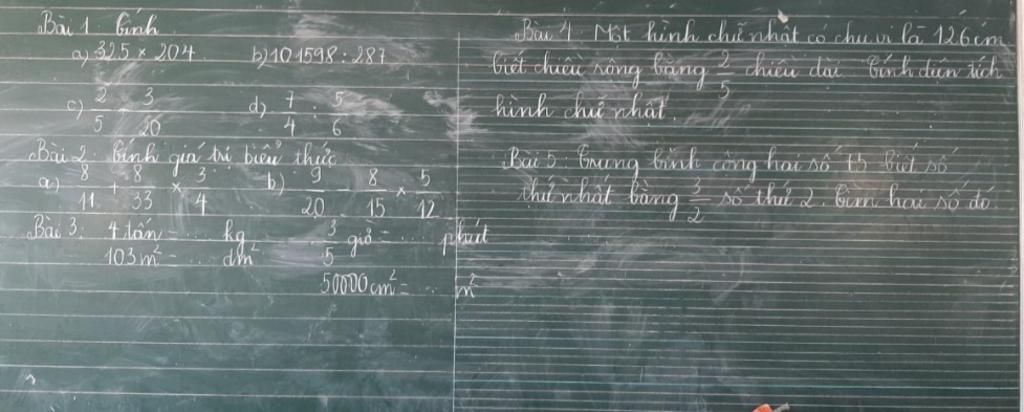 Bài 1: Tính
a) 325 × 204 b) 101598 : 287
c) 2/5 + 3/20 d) 7/4 : 5/6
Bài 2: Tính giá trị biểu thức
a) 8/11 + 8/33 × 3/4 b) 9/20 - 8/15 × 5/12
Bài 3: 4 tấn = ... kg 3/5 giờ = ... phút
103 m² = ... dm²
50000 cm² = ... m²
Bài 4: Một hình chữ nhật có chu vi là 126 cm
biết chiều rộng bằng 2/5 chiều dài. Tính diện tích
hình chữ nhật.
Bài 5: Trung bình cộng hai số 15 biết số
thứ nhất bằng 3/2 số thứ 2. Tìm hai số đó